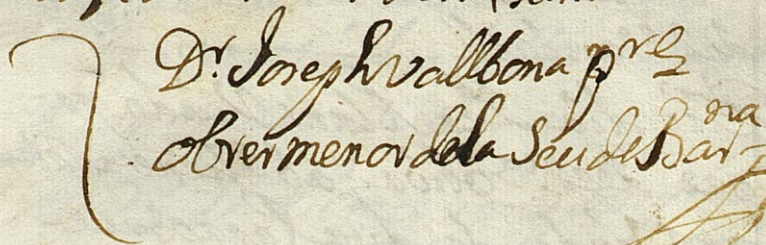 Dr. Joseph Vallbona pre
obrer menor de la Seu de Barna